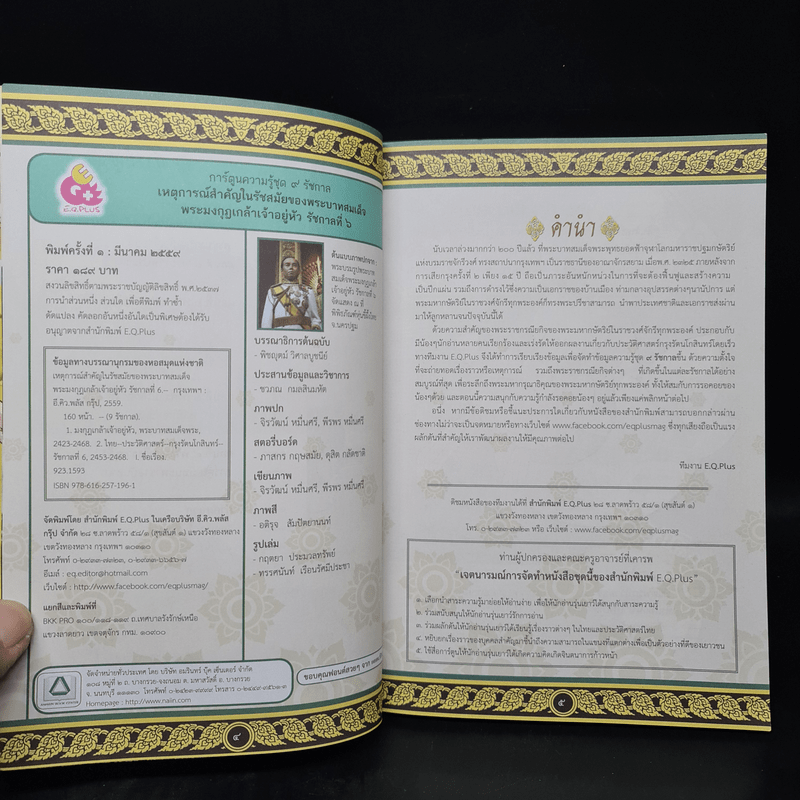 E.Q.PLUS
การ์ตูนความรู้ชุด ๙ รัชกาล
เหตุการณ์สำคัญในรัชสมัยของพระบาทสมเด็จ
พระมงกุฎเกล้าเจ้าอยู่หัว รัชกาลที่ ๖
พิมพ์ครั้งที่ ๑ : มีนาคม ๒๕๕๙
ราคา ๑๘๙ บาท
สงวนลิขสิทธิ์ตามพระราชบัญญัติลิขสิทธิ์ พ.ศ.๒๕๓๗
การนำส่วนหนึ่ง ส่วนใด เพื่อตีพิมพ์ ทำซ้ำ
ดัดแปลง คัดลอกอื่นหนึ่งอันใดเป็นพิเศษต้องได้รับ
อนุญาตจากสำนักพิมพ์ E.Q.Plus
ข้อมูลทางบรรณานุกรมของหอสมุดแห่งชาติ
เหตุการณ์สำคัญในรัชสมัยของพระบาทสมเด็จ
พระมงกุฎเกล้าเจ้าอยู่หัว รัชกาลที่ 6.-- กรุงเทพฯ :
อี.คิว.พลัส กรุ๊ป, 2559.
160 หน้า. -- (9 รัชกาล).
1. มงกุฎเกล้าเจ้าอยู่หัว, พระบาทสมเด็จพระ,
2423-2468. 2. ไทย--ประวัติศาสตร์--กรุงรัตนโกสินทร์--
รัชกาลที่ 6, 2453-2468. I. ชื่อเรื่อง.
923.1593
ISBN 978-616-257-196-1
จัดพิมพ์โดย สำนักพิมพ์ E.Q.Plus ในเครือบริษัท อี.คิว.พลัส
กรุ๊ป จำกัด ๒๘ ซ.ลาดพร้าว ๕๘/๑ (สุขสันต์ ๑) แขวงวังทองหลาง
เขตวังทองหลาง กรุงเทพฯ ๑๐๓๑๐
อีเมล eq.editor@hotmail.com
เว็บไซต์ : http://www.facebook.com/eqplusmag/
แยกสีและพิมพ์ที่
BKK PRO ๑๐๐/๑๑๘-๑๑๙ ถ.เทศบาลรังรักษ์เหนือ
แขวงลาดยาว เขตจตุจักร กทม. ๑๐๙๐๐
จัดจำหน่ายทั่วประเทศ โดย บริษัท อมรินทร์ บุ๊ค เซ็นเตอร์ จำกัด
๑๐๘ หมู่ที่ ๒ ถ. บางกรวย-จงถนอม ต. มหาสวัสดิ์ อ. บางกรวย
Homepage : http://www.naiin.com
ต้นแบบภาพปกจาก
พระบรมรูปหล่อ
พิพิธภัณฑ์หุ่นขี้ผึ้งไทย
จ.นครปฐม
บรรณาธิการต้นฉบับ
- พิชญุตม์ วิศาลบูชนีย์
ประสานข้อมูลและวิชาการ
- ชวภณ กมลสินมหัต
ภาพปก
- จิรวัฒน์ หมื่นศรี, พีรพร หมื่นศรี
สตอรี่บอร์ด
- ภาสกร กฤษสมัย, ดุสิต กลัดชาติ
เขียนภาพ
- จิรวัฒน์ หมื่นศรี, พีรพร หมื่นศรี
ภาพสี
- อติรุจ สัมปัตยานนท์
รูปเล่ม
- กฤตยา ประมวลทรัพย์
- ทรรศนันท์ เรือนรัศมีประชา
ขอบคุณฟอนต์สวยๆ จาก
๔
คำนำ
นับเวลาล่วงมากกว่า ๒๐๐ ปีแล้ว ที่พระบาทสมเด็จพระพุทธยอดฟ้าจุฬาโลกมหาราชปฐมกษัตริย์
แห่งบรมราชจักรีวงศ์ ทรงสถาปนากรุงเทพฯ เป็นราชธานีของอาณาจักรสยาม เมื่อพ.ศ. ๒๓๒๕ ภายหลังจาก
การเสียกรุงครั้งที่ ๒ เพียง ๑๕ ปี ถือเป็นภาระอันหนักหน่วงในการที่จะต้องฟื้นฟูและสร้างความ
เป็นปึกแผ่น รวมถึงการดำรงไว้ซึ่งความเป็นเอกราชของบ้านเมือง ท่ามกลางอุปสรรคต่างๆนานัปการ แต่
พระมหากษัตริย์ในราชวงศ์จักรีทุกพระองค์ก็ทรงพระปรีชาสามารถ นำพาประเทศชาติและเอกราชส่งผ่าน
มาให้ลูกหลานจนปัจจุบันนี้ได้
ด้วยความสำคัญของพระราชกรณียกิจของพระมหากษัตริย์ในราชวงศ์จักรีทุกพระองค์ ประกอบกับ
มีน้องๆนักอ่านหลายคนเรียกร้องและเร่งรัดให้ออกผลงานเกี่ยวกับประวัติศาสตร์กรุงรัตนโกสินทร์โดยเร็ว
ทางทีมงาน E.Q.Plus จึงได้ทำการเรียบเรียงข้อมูลเพื่อจัดทำข้อมูลความรู้ชุด ๙ รัชกาลขึ้น ด้วยความตั้งใจ
ที่จะถ่ายทอดเรื่องราวหรือเหตุการณ์ รวมถึงพระราชกรณียกิจต่างๆ ที่เกิดขึ้นในแต่ละรัชกาลได้อย่าง
สมบูรณ์ที่สุด เพื่อระลึกถึงพระมหากรุณาธิคุณของพระมหากษัตริย์ทุกพระองค์ ทั้งให้สมกับการรอคอยของ
น้องๆด้วย และตอนนี้ความสนุกกับความรู้กำลังรอคอยน้องๆ อยู่แล้วเพียงแค่พลิกหน้าต่อไป
อนึ่ง หากมีข้อติชมหรือชี้แนะประการใดเกี่ยวกับหนังสือของสำนักพิมพ์สามารถบอกกล่าวผ่าน
ช่องทางไม่ว่าจะเป็นจดหมายหรือทางเว็บไซต์ www.facebook.com/eqplusmag ซึ่งทุกเสียงถือเป็นแรง
ผลักดันที่สำคัญให้เราพัฒนาผลงานให้มีคุณภาพต่อไป
ทีมงาน E.Q.Plus
ติชมหนังสือของทีมงานได้ที่ สำนักพิมพ์ E.Q.Plus ๒๘ ซ.ลาดพร้าว ๕๘/๑ (สุขสันต์ ๑)
แขวงวังทองหลาง เขตวังทองหลาง กรุงเทพฯ ๑๐๓๑๐
ท่านผู้ปกครองและคณะครูอาจารย์ที่เคารพ
"เจตนารมณ์การจัดทำหนังสือชุดนี้ของสำนักพิมพ์ E.Q.Plus"
๑. เลือกนำสาระความรู้มาย่อยให้อ่านง่าย เพื่อให้นักอ่านรุ่นเยาว์ได้สนุกกับสาระความรู้
๒. ร่วมสนับสนุนให้นักอ่านรุ่นเยาว์รักการอ่าน
๓. ร่วมผลักดันให้นักอ่านรุ่นเยาว์ได้เรียนรู้เรื่องราวต่างๆ ในไทยและประวัติศาสตร์ไทย
๔. หยิบยกเรื่องราวของบุคคลสำคัญมาชี้นำถึงความสามารถในแขนงที่แตกต่างเพื่อเป็นตัวอย่างที่ดีของเยาวชน
๕. ใช้สื่อการ์ตูนให้นักอ่านรุ่นเยาว์ได้เกิดความคิดเกิดจินตนาการก้าวหน้า
๕